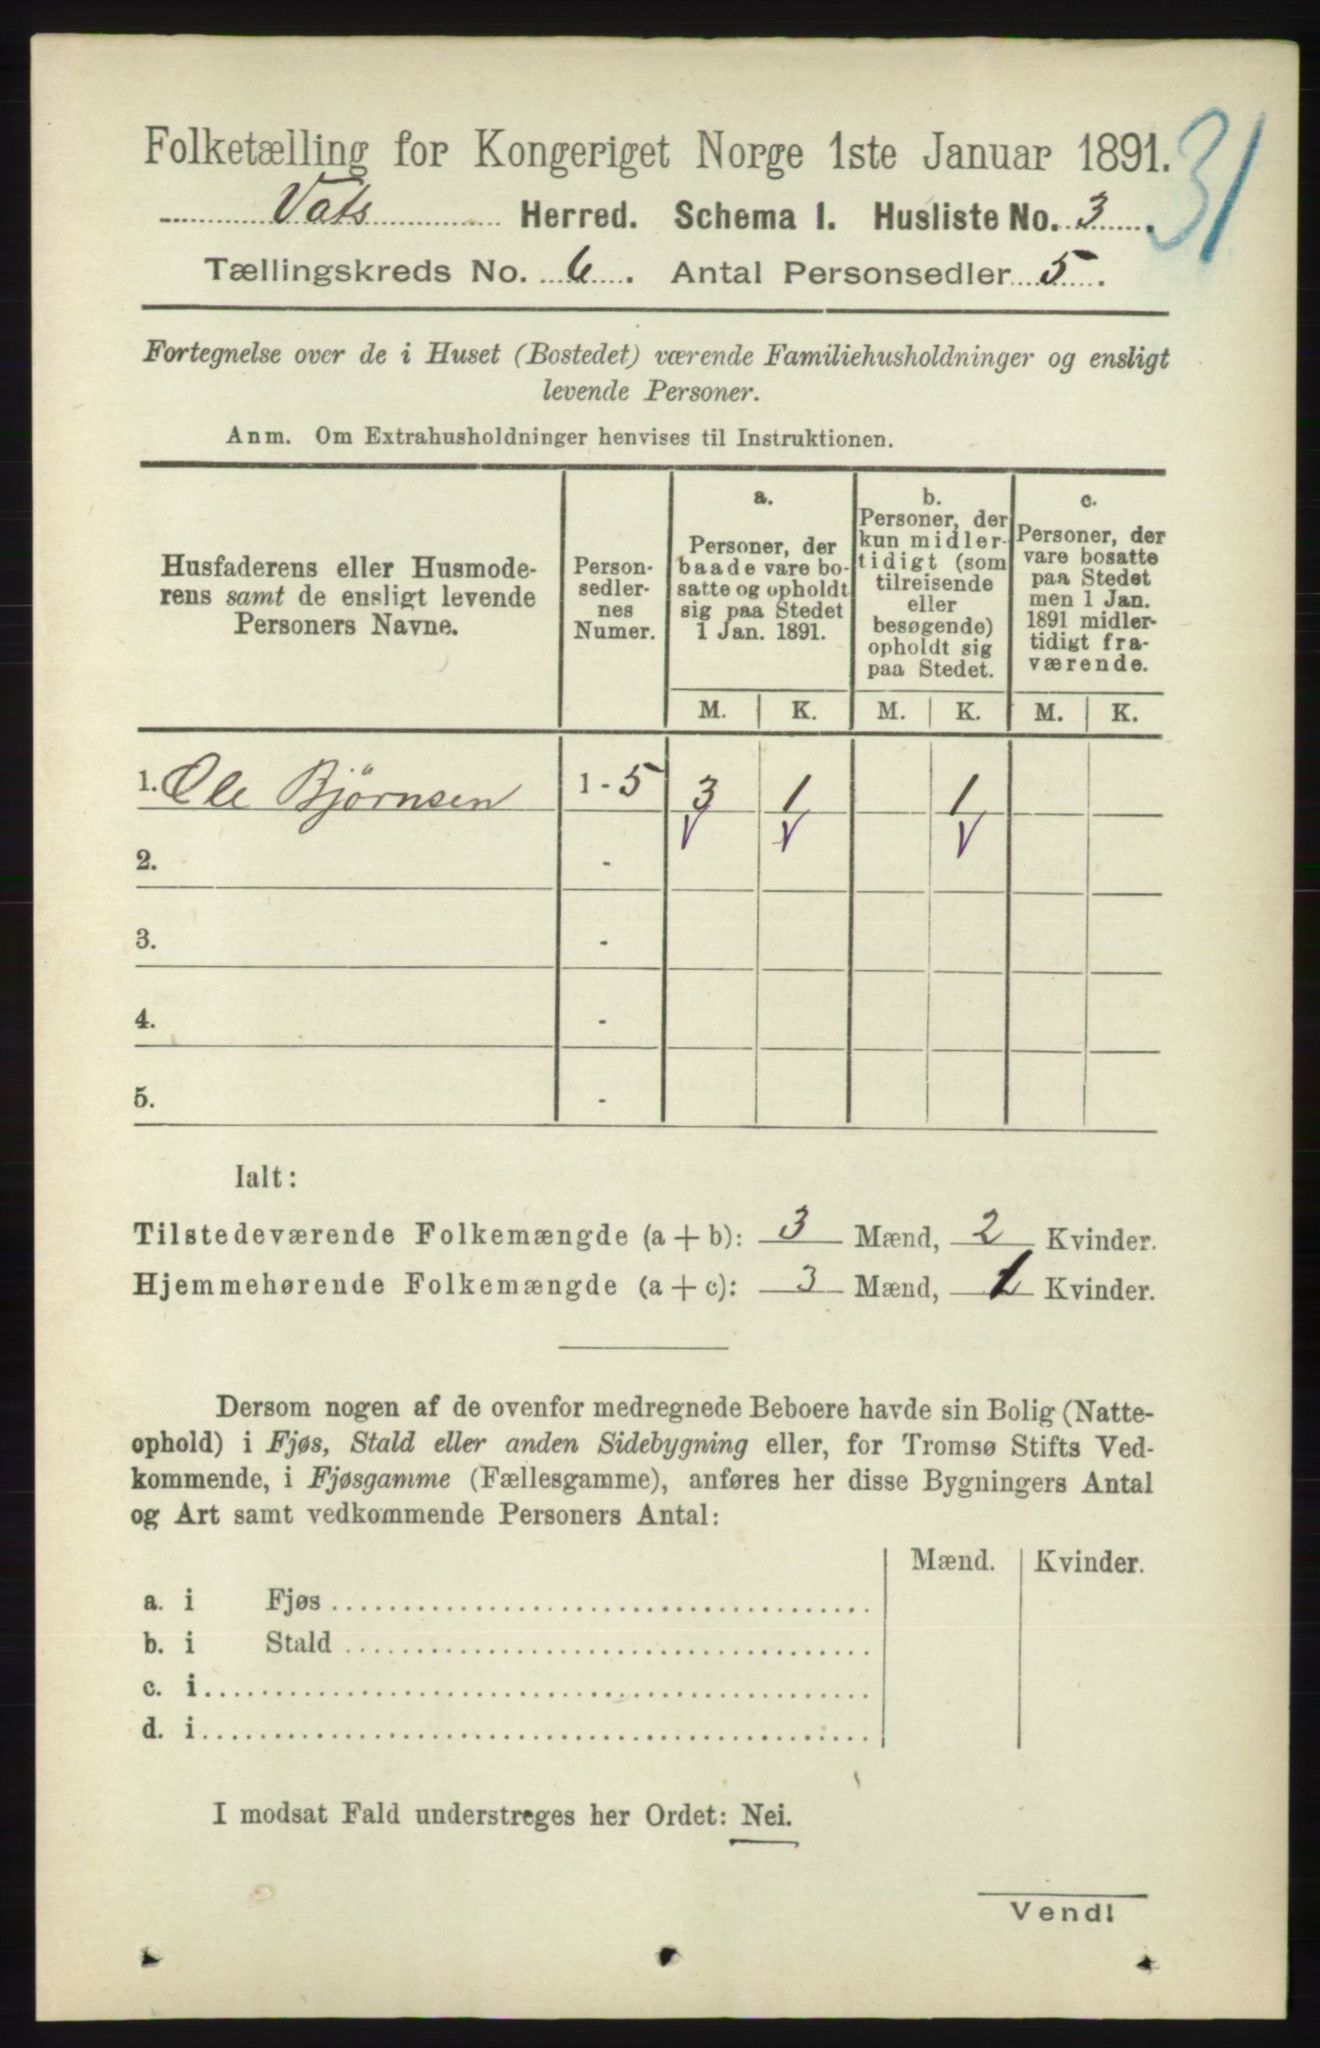 31
Folketælling for Kongeriget Norge 1ste Januar 1891.
Vats Herred. Schema I. Husliste No. 3.
Tællingskreds No. 6. Antal Personsedler 5.
Fortegnelse over de i Huset (Bostedet) værende Familiehusholdninger og ensligt
levende Personer.
Anm. Om Extrahusholdninger henvises til Instruktionen.
Husfaderens eller Husmode-
rens samt de ensligt levende
Personers Navne.
Person-
sedler-
nes
Numer.
a.
Personer, der
baade vare bo-
satte og opholdt
sig paa Stedet
1 Jan. 1891.
b.
Personer, der
kun midler-
tidigt (som
tilreisende
eller
besøgende)
opholdt sig
paa Stedet.
c.
Personer, der
vare bosatte
paa Stedet
men 1 Jan.
1891 midler-
tidigt fra-
værende.
M. K. M. K. M. K.
1. Ole Bjørnsen 1 - 5 3 1 1
V V V
2. -
3. -
4. -
5. -
Ialt:
Tilstedeværende Folkemængde (a + b): 3 Mænd, 2 Kvinder.
Hjemmehørende Folkemængde (a + c): 3 Mænd, 1 Kvinder.
Dersom nogen af de ovenfor medregnede Beboere havde sin Bolig (Natte-
ophold) i Fjøs, Stald eller anden Sidebygning eller, for Tromsø Stifts Ved-
kommende, i Fjøsgamme (Fællesgamme), anføres her disse Bygningers Antal
og Art samt vedkommende Personers Antal:
Mænd. Kvinder.
a. i Fjøs
b. i Stald
c. i
d. i
I modsat Fald understreges her Ordet: Nei.
Vend!